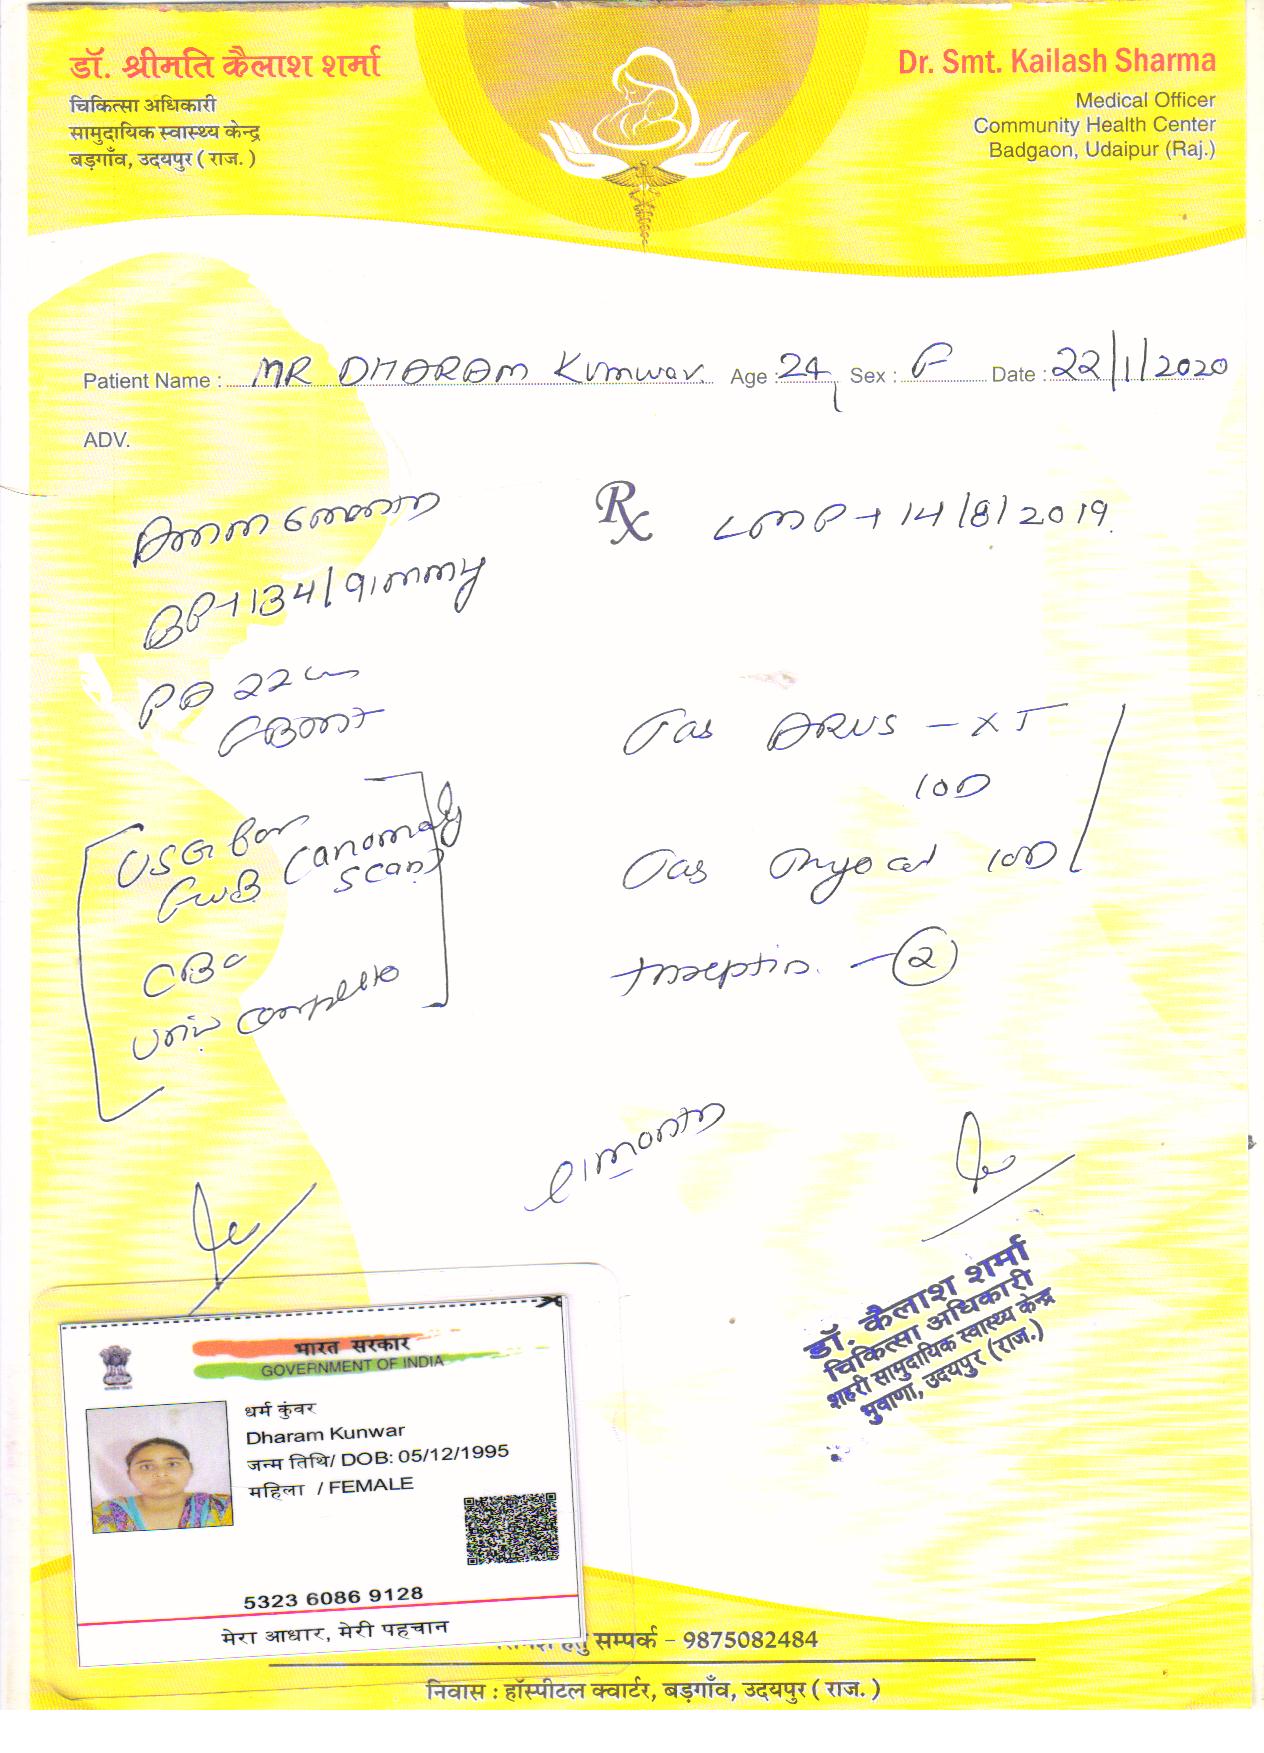 डॉ. श्रीमति कैलाश शर्मा
चिकित्सा अधिकारी
सामुदायिक स्वास्थ्य केन्द्र
बड़गाँव, उदयपुर ( राज. )
Dr. Smt. Kailash Sharma
Medical Officer
Community Health Center
Badgaon, Udaipur (Raj.)
Patient Name : MR DHARAM Kunwar. Age : 24 Sex : F Date : 22/1/2020
ADV.
6 month
BP → 134/91 mmHg
PA 22 w
USG for
FWB (anomaly
scan)
CBC
Urin complete
Rx LMP → 14/8/2019
Tab - XT
1OD
Tab 1OD
- 2
1 month
डॉ. कैलाश शर्मा
चिकित्सा अधिकारी
शहरी सामुदायिक स्वास्थ्य केन्द्र
भुवाणा, उदयपुर (राज.)
भारत सरकार
GOVERNMENT OF INDIA
धर्म कुंवर
Dharam Kunwar
जन्म तिथि/ DOB: 05/12/1995
महिला / FEMALE
5323 6086 9128
मेरा आधार, मेरी पहचान
हेतु सम्पर्क - 9875082484
निवास : हॉस्पीटल क्वार्टर, बड़गाँव, उदयपुर ( राज. )